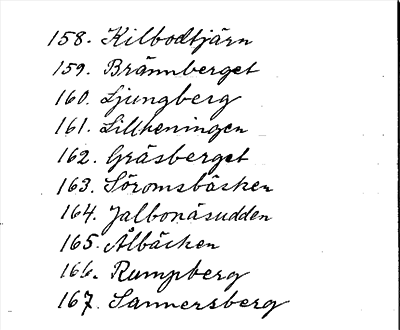 158. Kilbodtjärn
159. Brännberget
160. Ljungberg
161. Lillheningen
162. Gräsberget
163. Söromsbäcken
164. Jalbonäsudden
165. Ålbäcken
166. Rumpberg
167. Sannersberg